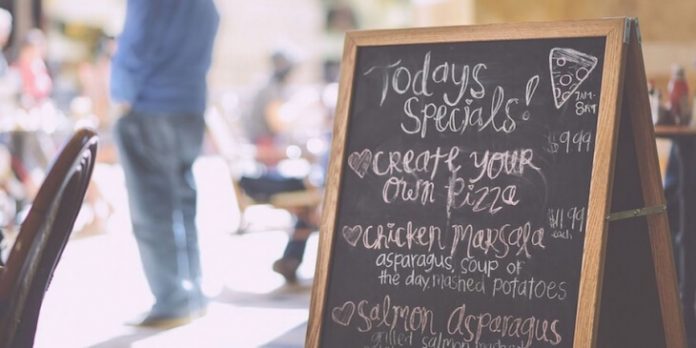 Todays
Specials!
7AM-
8PM
$9.99
Create your
own pizza
$11.99
each
Chicken Marsala
asparagus, soup of
the day, mashed potatoes
Salmon Asparagus
grilled salmon, mashed